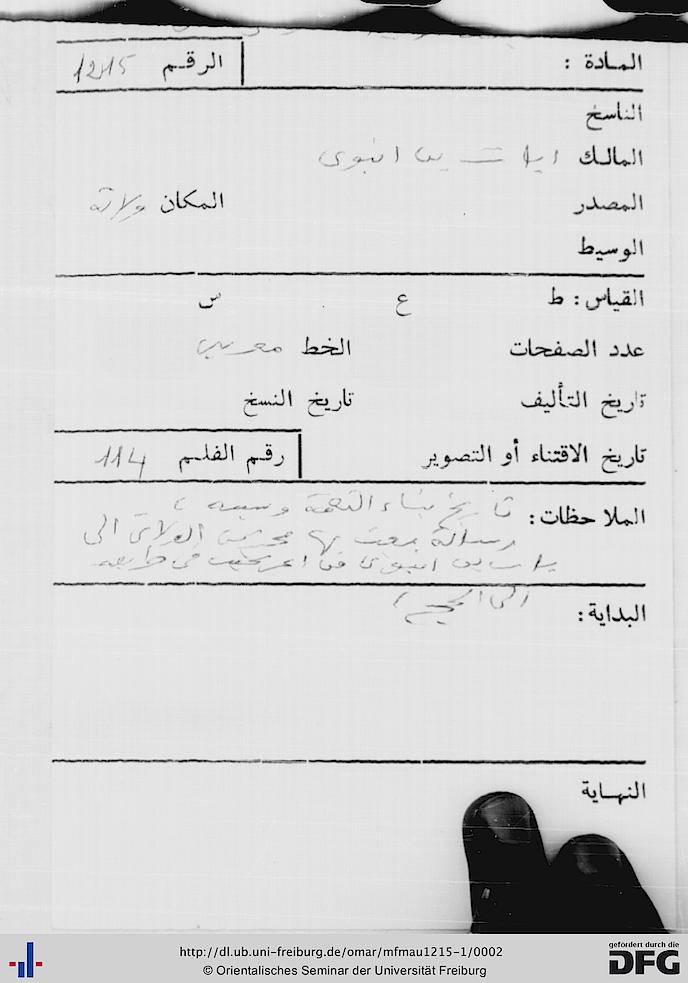 المادة : الرقم 1215
الناسخ
المالك
المصدر المكان ولاته
الوسيط
القياس : ط ع س
عدد الصفحات الخط مغربي
تاريخ التأليف تاريخ النسخ
تاريخ الاقتناء أو التصوير رقم الفلم 114
الملاحظات : تاريخ بناء
رسالة بعث بها الولاتي الى
في طريقه
البداية : الى الحج
النهاية
http://dl.ub.uni-freiburg.de/omar/mfmau1215-1/0002
© Orientalisches Seminar der Universität Freiburg
gefördert durch die
DFG